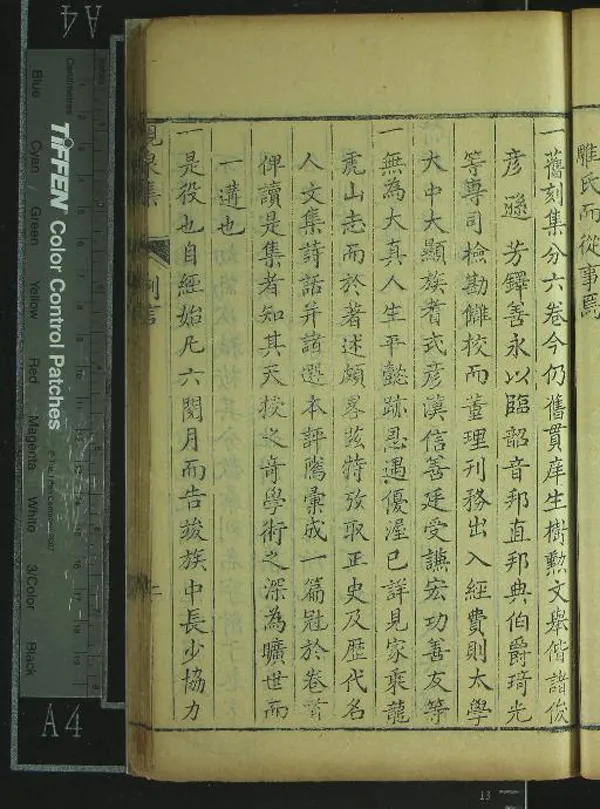 雕氏而從事焉
一舊刻集分六卷今仍舊貫庠生樹勲文舉偕諸俊
彦遜芳鐸善永以臨韶音邦直邦典伯爵琦光
等專司檢勘讎校而董理刋務出入經費則太學
大中大顯族耆式彦漢信善廷受讌宏功善友等
一無為大真人生平懿跡恩遇優渥已詳見家乘龍
虎山志而於著述頗畧兹特攷取正史及歴代名
人文集詩話并諸選本評隲彙成一篇冠於卷首
俾讀是集者知其天授之竒學術之深為曠世而
一遘也
一是役也自經始凡六閱月而告竣族中長少協力
峴泉集
例言
二
A4
Centimetres
TIFFEN Color Control Patches
© The Tiffen Company, 2007
Blue
Cyan
Green
Yellow
Red
Magenta
White
3/Color
Black
A4
13